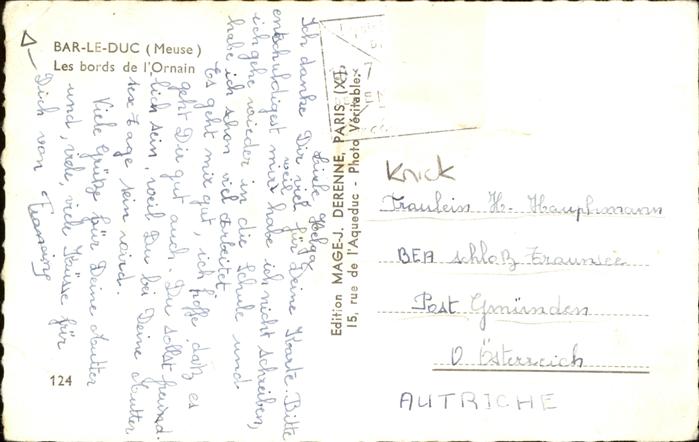 BAR-LE-DUC (Meuse)
Les bords de l'Ornain
Liebe Helga
Ich danke Dir viel für Deine Karte. Bitte
entschuldigest mir weil habe ich nicht schreiben,
ich gehe wieder in die Schule und
habe ich schon viel arbeitet
Es geht mir gut, ich hoffe daß es
geht Dir gut auch. Du sollst freund-
lich sein, weil Du bei Deine Mutter
sex Tage sein wird.
Viele Grüße für Deine Mutter
und, viele, viele Küsse für
Dich von Francine
124
Edition MAGE-J. DERENNE, PARIS (XI)
15, rue de l'Aqueduc - Photo Véritable.
Knick
Fraulein H. Hauptmann
BEA schloß Traunsee
Post Gmünden
O Österreich
AUTRICHE